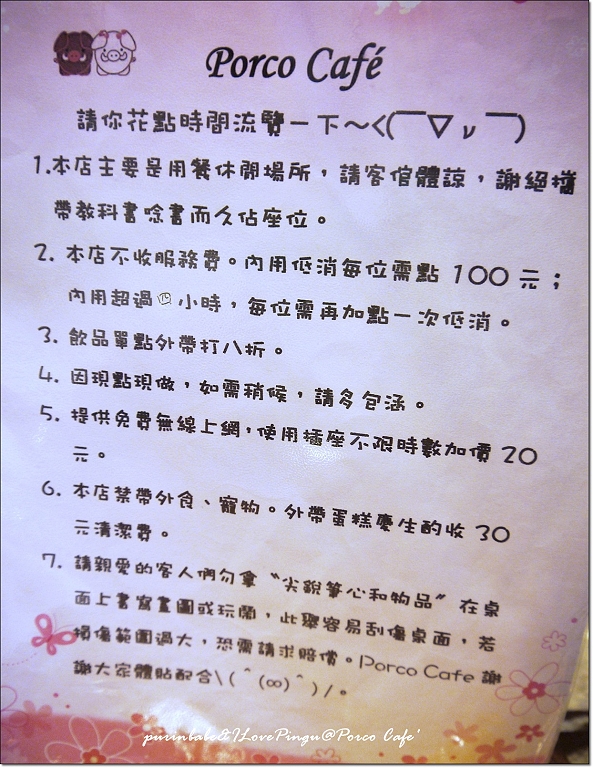 Porco Café
請你花點時間流覽一下~<(￣▽ν￣)
1.本店主要是用餐休閒場所，請客倌體諒，謝絕攜
帶教科書唸書而久佔座位。
2. 本店不收服務費。內用低消每位需點 100 元；
內用超過四小時，每位需再加點一次低消。
3. 飲品單點外帶打八折。
4. 因現點現做，如需稍候，請多包涵。
5. 提供免費無線上網，使用插座不限時數加價 20
元。
6. 本店禁帶外食、寵物。外帶蛋糕慶生酌收 30
元清潔費。
7. 請親愛的客人們勿拿〝尖銳筆心和物品〞在桌
面上書寫畫圖或玩鬧，此舉容易刮傷桌面，若
損傷範圍過大，恐需請求賠償。Porco Cafe 謝
謝大家體貼配合\(^(∞)^)/。
purintale&ILovePingu@Porco Cafe'